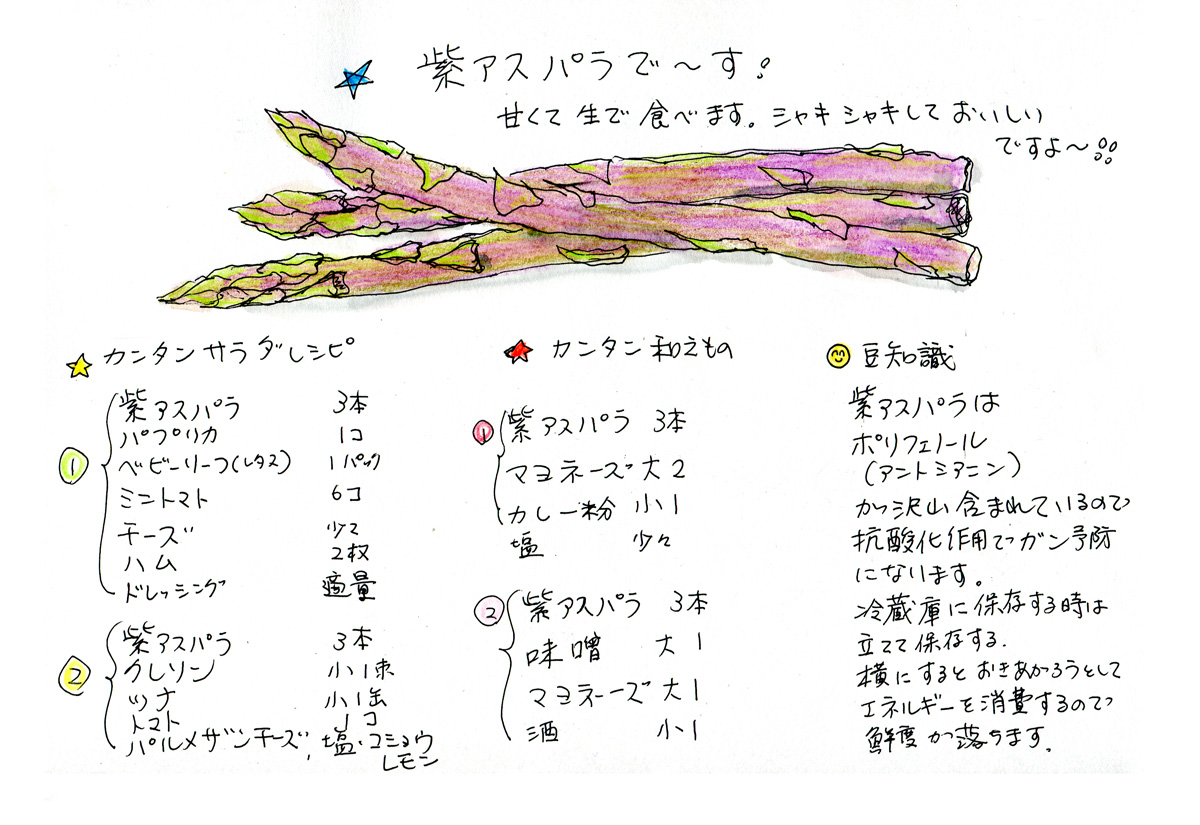 紫アスパラで〜す!
甘くて生で食べます。シャキシャキしておいしい
ですよ〜!!
カンタンサラダレシピ
①
紫アスパラ 3本
パプリカ 1コ
ベビーリーフ(レタス) 1パック
ミニトマト 6コ
チーズ 少々
ハム 2枚
ドレッシング 適量
②
紫アスパラ 3本
クレソン 小1束
ツナ 小1缶
トマト 1コ
パルメザンチーズ, 塩・コショウ
レモン
カンタン和えもの
①
紫アスパラ 3本
マヨネーズ 大2
カレー粉 小1
塩 少々
②
紫アスパラ 3本
味噌 大1
マヨネーズ 大1
酒 小1
豆知識
紫アスパラは
ポリフェノール
(アントシアニン)
が沢山含まれているので
抗酸化作用でガン予防
になります。
冷蔵庫に保存する時は
立てて保存する.
横にするとおきあがろうとして
エネルギーを消費するので
鮮度が落ちます.